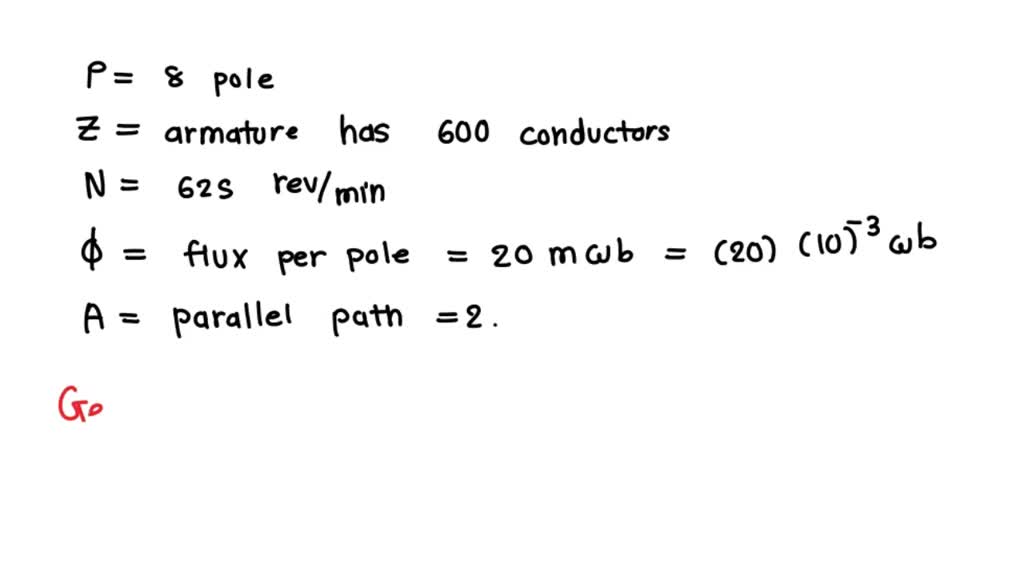 P = 8 pole
Z = armature has 600 conductors
N = 625 rev/min
ϕ = flux per pole = 20 mwb = (20) (10)⁻³ wb
A = parallel path = 2.
Ge